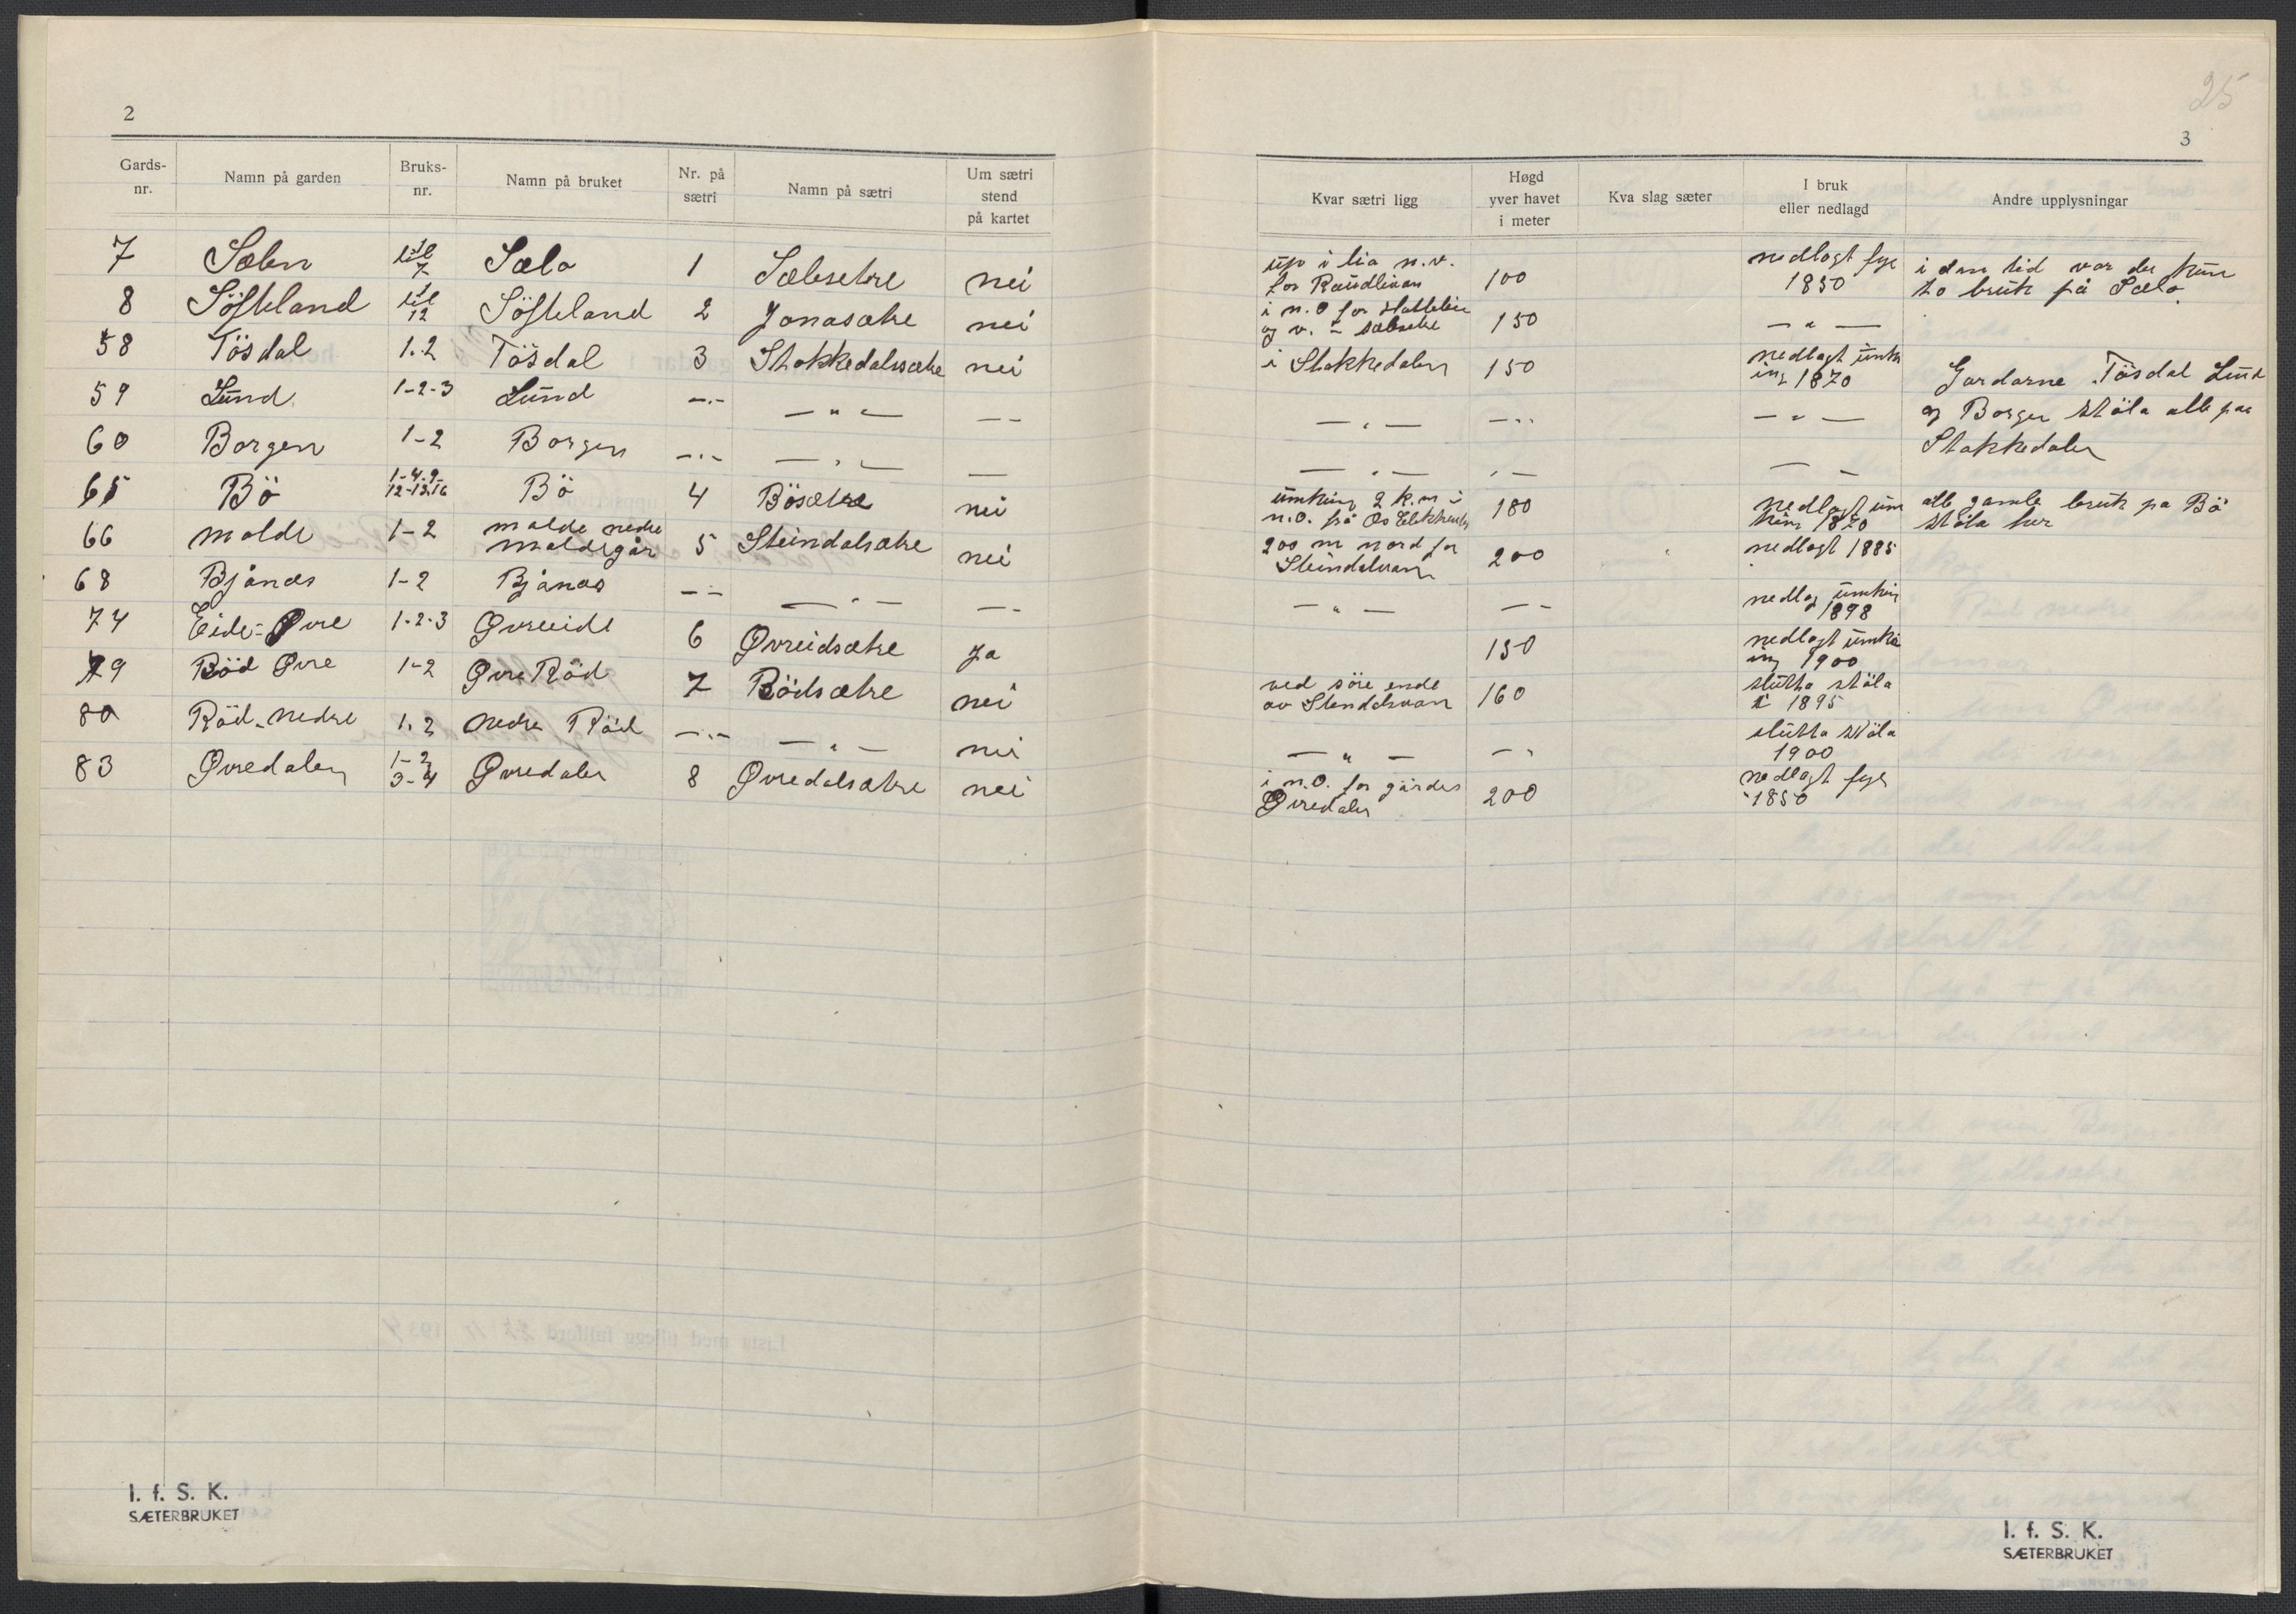 2
Gards-nr. Namn på garden Bruks-nr. Namn på bruket Nr. på sætri Namn på sætri Um sætri stend på kartet
7 Sælen 1 til 7 Sælo 1 Sælesetre nei
8 Söfteland 1 til 12 Söfteland 2 Jonasætre nei
58 Tösdal 1.2 Tösdal 3 Stokkedalssætre nei
59 Lund 1-2-3 Lund -.- — " — — —
60 Borgen 1-2 Borgen -.- — " — —
65 Bö 1-4-9-12-13.16 Bö 4 Bösætre nei
66 Molde 1-2 Molde nedre Moldegår 5 Steindalsætre nei
68 Bjånæs 1-2 Bjånæs — — — " — — -
74 Eide-Øvre 1-2-3 Øvreeide 6 Øvreidsætre Ja
79 Röd Øvre 1-2 Øvre Röd 7 Rödsætre nei
80 Röd-nedre 1.2 nedre Röd -.- — " — nei
83 Øvredalen 1-2 3-4 Øvredalen 8 Øvredalsætre nei
I. f. S. K.
SÆTERBRUKET
25
3
Kvar sætri ligg Høgd yver havet i meter Kva slag sæter I bruk eller nedlagd Andre upplysningar
up i lia n.v. for Raudlivan 100 nedlagt fyr 1850 i dan tid var der kun to bruk på Sælo.
i n.O for og v. - 150 — " —
i Stokkedalen 150 nedlagt umkring 1870 Gardarne Tösdal Lund
— " — — " — " — og Borgen stöla alle paa
— " — " — — — Stokkedalen
umkring 2 k.m i n.O. frå Os 180 nedlagt umkring 1870 alle gamle bruk på Bö stöla her
200 m nord for Steindalsvan 200 nedlagt 1885
— " — — - nedlag umkring 1898
150 nedlagt umkring 1900
ved söre ende av Stendalsvan 160 slutta stöla i 1895
— " — — " slutta stöla 1900
i n.O. for gårdes Øvredalen 200 nedlagt fyr 1850
I. f. S. K.
SÆTERBRUKET